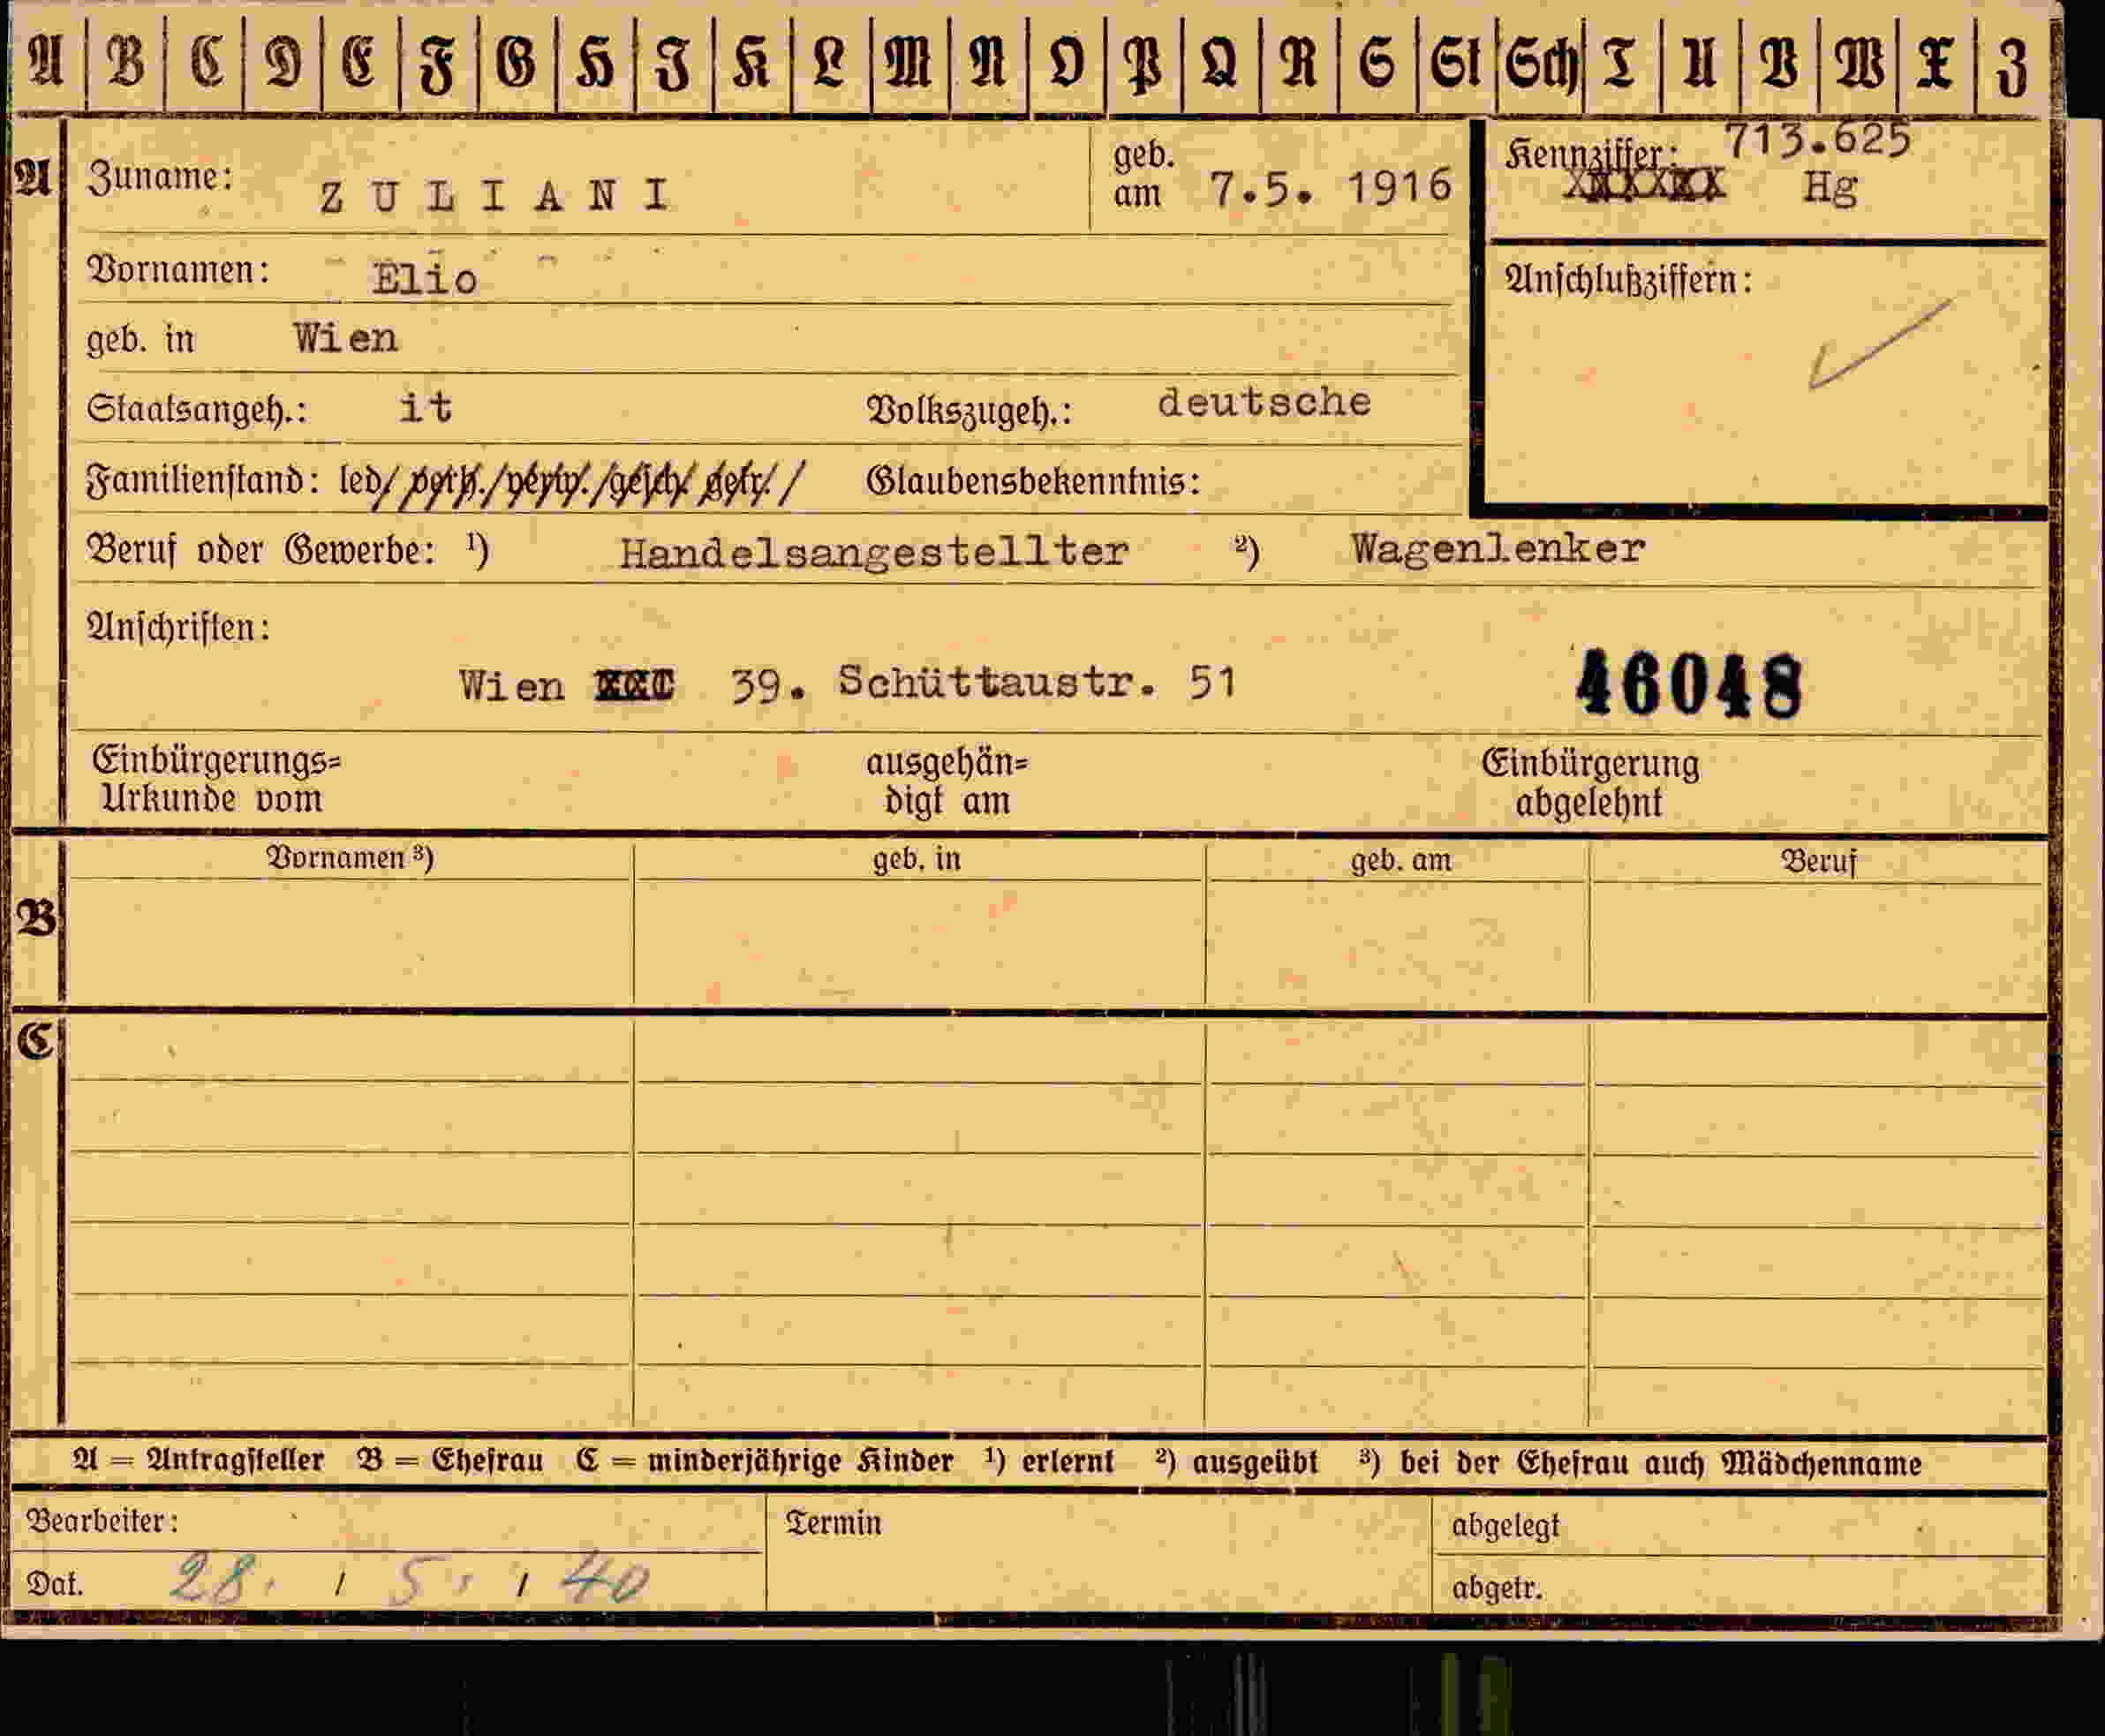 A B C D E F G H I K L M N O P Q R S St Sch T U V W X Z
A Zuname: ZULIANI geb. am 7.5. 1916 Kennziffer: 713.625
Hg
Vornamen: Elio Anschlußziffern:
geb. in Wien
Staatsangeh.: it Volkszugeh.: deutsche
Familienstand: led/ verh./verw./gesch/ getr./ Glaubensbekenntnis:
Beruf oder Gewerbe: ¹) Handelsangestellter ²) Wagenlenker
Anschriften:
Wien 39. Schüttaustr. 51 46048
Einbürgerungs= ausgehän= Einbürgerung
Urkunde vom digt am abgelehnt
Vornamen ³) geb. in geb. am Beruf
B
C
A = Antragsteller B = Ehefrau C = minderjährige Kinder ¹) erlernt ²) ausgeübt ³) bei der Ehefrau auch Mädchenname
Bearbeiter: Termin abgelegt
Dat. 28. / 5. / 40 abgetr.